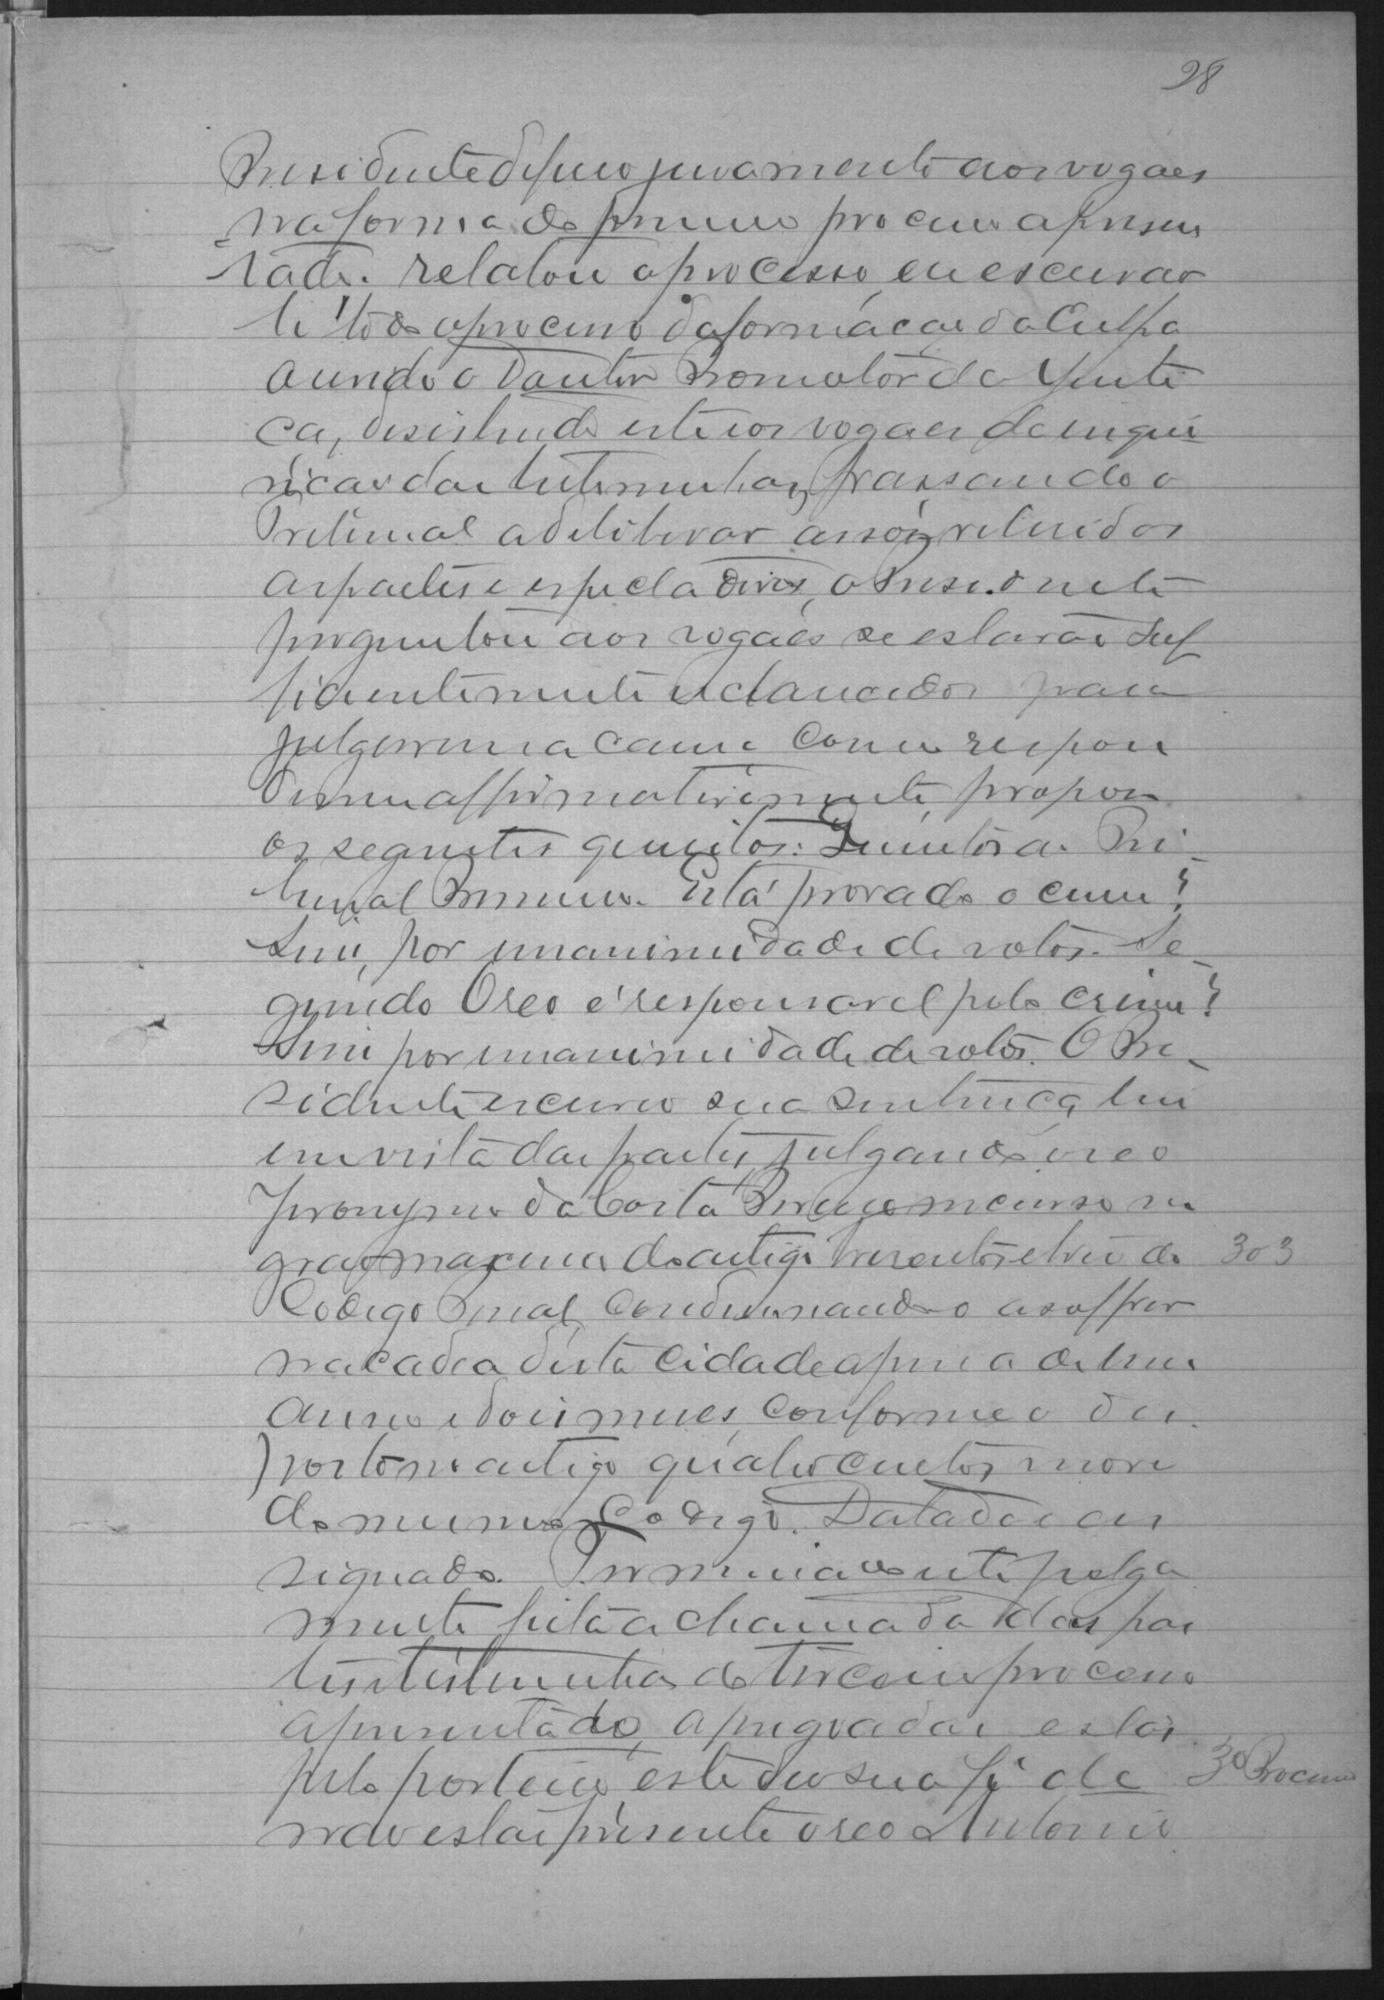 28
Presidente deferio juramento aos vogaes
na forma do primeiro processo apresen
tado. relatou o processo, eu escrivão
li todo o processo da formação da Culpa
ouvindo o Doutor Promotor da Justi
ça, desistindo este e os vogaes da inqui
rição das testemunhas, passando o
Tribunal a deliberar a sós, retirados
as partes e espectadores, o Presidente
preguntou aos vogaes se estavão suf
ficientemente esclarecidos para
julgarem a causa como respon
dessem affirmativamente, propoz
os seguintes quesitos: Quesitos ao Tri
bunal Primeiro. Está provado o crime?
Sim, por unanimidade de votos. Se
gundo O reo é responsavel pelo crime?
Sim por unanimidade de votos. O Pre
sidente escreveo sua sentença, leu
em vista das partes, julgando o reo
Jeronymo da Costa incurso no
grao maximo do artigo trezentos e tres do 303
Codigo Penal, Condemnando-o a soffrer
na cadea desta cidade a pena de hum
anno e dois mezes, conforme o dis
posto no artigo quatrocentos e nove
do mesmo Codigo. Datado e as
signado. Terminado este julga
mento feita a chamada das par
tes e testemunhas do terceiro processo
apresentado, apregoadas estas
pelo porteiro, este deo sua fé de 3o Processo
não estar presente o reo Antonio